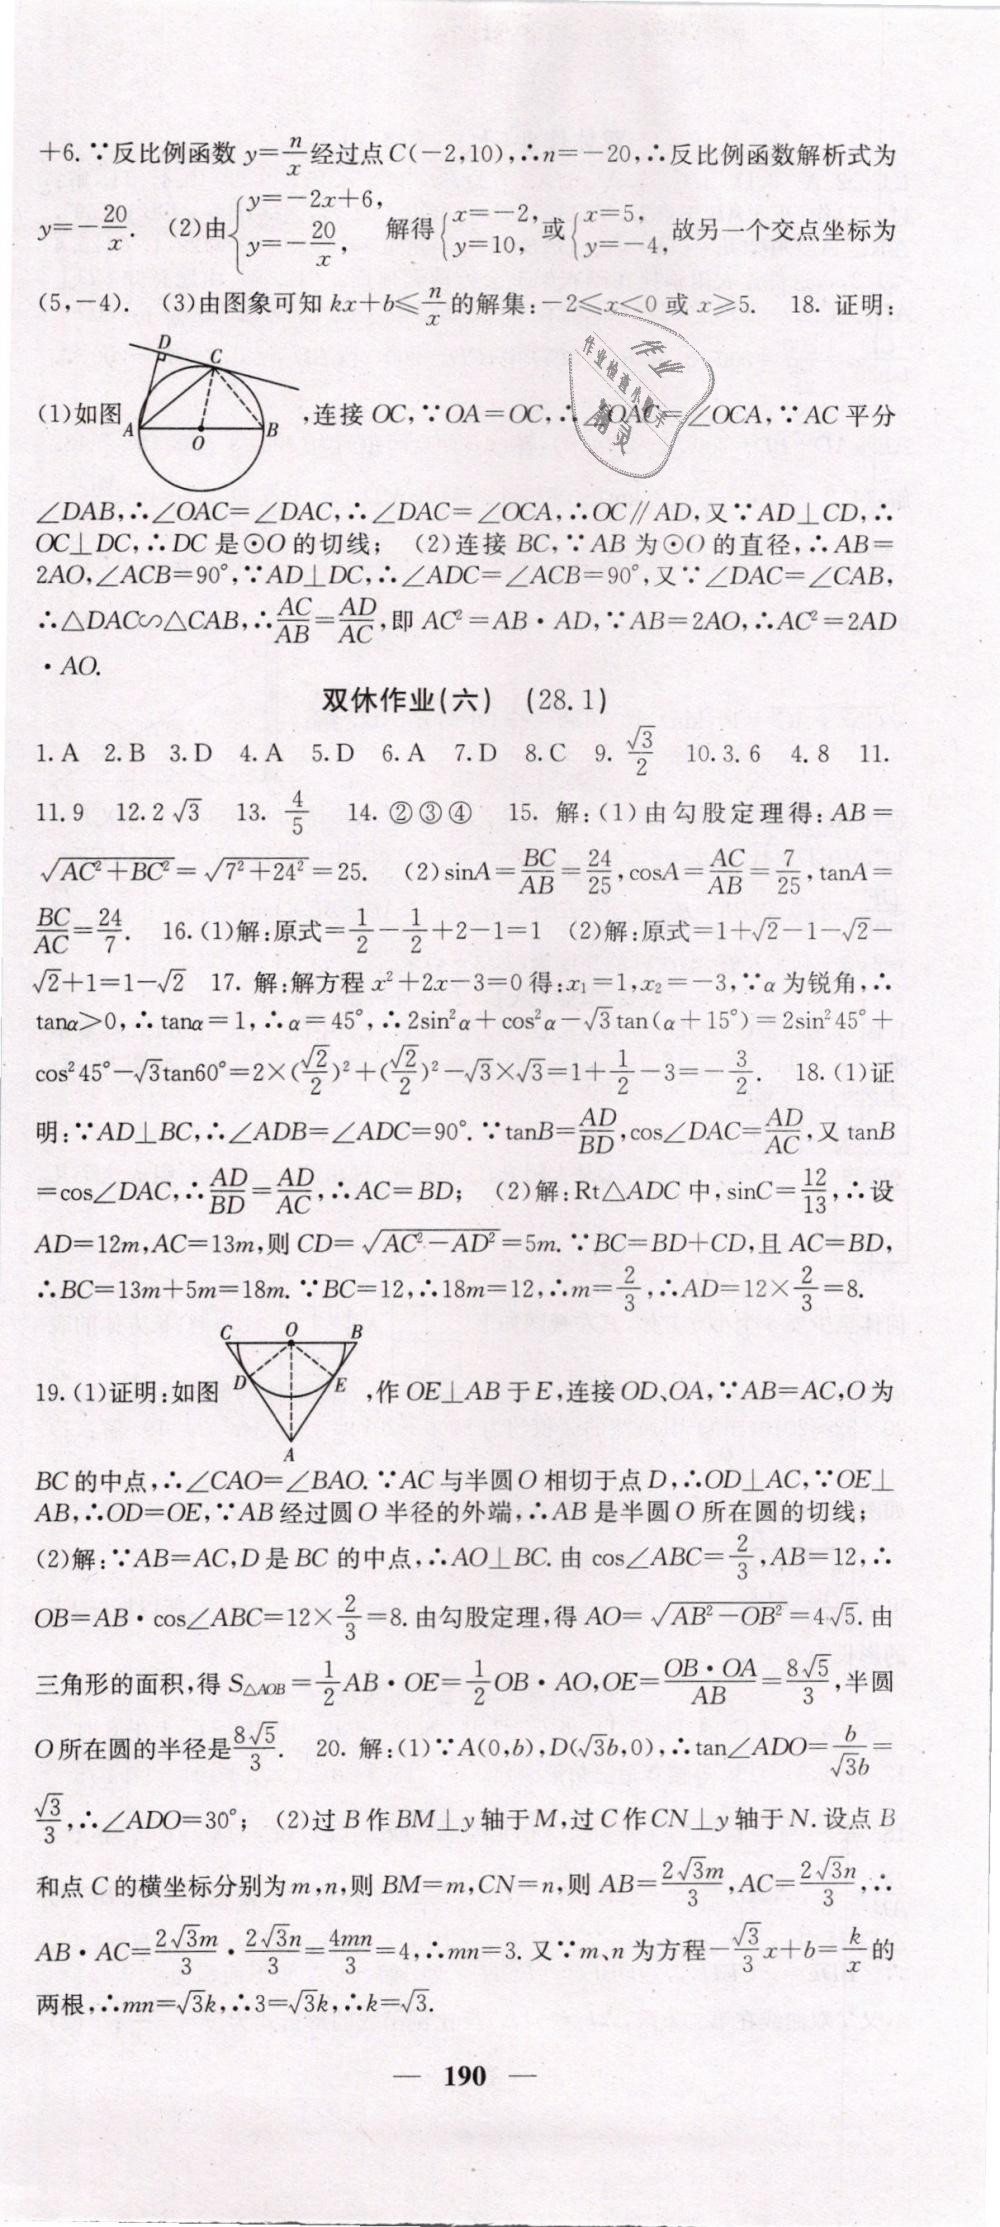 +6.∵反比例函数 y=n/x 经过点C(-2,10),∴n=-20,∴反比例函数解析式为
y=-20/x. (2)由{y=-2x+6, y=-20/x, 解得{x=-2, y=10, 或{x=5, y=-4, 故另一个交点坐标为
(5,-4). (3)由图象可知 kx+b≤n/x 的解集:-2≤x<0 或 x≥5. 18. 证明:
D C
(1)如图 A O B ,连接 OC,∵OA=OC,∴∠OAC=∠OCA,∵AC 平分
作业
作业检查小助手
精灵
∠DAB,∴∠OAC=∠DAC,∴∠DAC=∠OCA,∴OC∥AD,又∵AD⊥CD,∴
OC⊥DC,∴DC 是⊙O 的切线; (2)连接 BC,∵AB 为⊙O 的直径,∴AB=
2AO,∠ACB=90°,∵AD⊥DC,∴∠ADC=∠ACB=90°,又∵∠DAC=∠CAB,
∴△DAC∽△CAB,∴AC/AB=AD/AC,即 AC²=AB·AD,∵AB=2AO,∴AC²=2AD
·AO.
双休作业(六) (28.1)
1.A 2.B 3.D 4.A 5.D 6.A 7.D 8.C 9. √3/2 10.3.6 4.8 11.
11.9 12.2√3 13. 4/5 14.②③④ 15. 解:(1)由勾股定理得:AB=
√(AC²+BC²)=√(7²+24²)=25. (2)sinA=BC/AB=24/25,cosA=AC/AB=7/25,tanA=
BC/AC=24/7. 16.(1)解:原式=1/2-1/2+2-1=1 (2)解:原式=1+√2-1-√2-
√2+1=1-√2 17. 解:解方程 x²+2x-3=0 得:x₁=1,x₂=-3,∵α为锐角,∴
tanα>0,∴tanα=1,∴α=45°,∴2sin²α+cos²α-√3tan(α+15°)=2sin²45°+
cos²45°-√3tan60°=2×(√2/2)²+(√2/2)²-√3×√3=1+1/2-3=-3/2. 18.(1)证
明:∵AD⊥BC,∴∠ADB=∠ADC=90°.∵tanB=AD/BD,cos∠DAC=AD/AC,又 tanB
=cos∠DAC,∴AD/BD=AD/AC,∴AC=BD; (2)解:Rt△ADC 中,sinC=12/13,∴设
AD=12m,AC=13m,则 CD=√(AC²-AD²)=5m.∵BC=BD+CD,且 AC=BD,
∴BC=13m+5m=18m.∵BC=12,∴18m=12,∴m=2/3,∴AD=12×2/3=8.
C O B
19.(1)证明:如图 D E ,作 OE⊥AB 于 E,连接 OD、OA,∵AB=AC,O 为
A
BC 的中点,∴∠CAO=∠BAO.∵AC 与半圆 O 相切于点 D,∴OD⊥AC,∵OE⊥
AB,∴OD=OE,∵AB 经过圆 O 半径的外端,∴AB 是半圆 O 所在圆的切线;
(2)解:∵AB=AC,D 是 BC 的中点,∴AO⊥BC.由 cos∠ABC=2/3,AB=12,∴
OB=AB·cos∠ABC=12×2/3=8.由勾股定理,得 AO=√(AB²-OB²)=4√5.由
三角形的面积,得 S△AOB=1/2 AB·OE=1/2 OB·AO,OE=OB·OA/AB=8√5/3,半圆
O 所在圆的半径是8√5/3. 20. 解:(1)∵A(0,b),D(√3b,0),∴tan∠ADO=b/√3b=
√3/3,∴∠ADO=30°; (2)过 B 作 BM⊥y 轴于 M,过 C 作 CN⊥y 轴于 N.设点 B
和点 C 的横坐标分别为 m,n,则 BM=m,CN=n,则 AB=2√3m/3,AC=2√3n/3,∴
AB·AC=2√3m/3·2√3n/3=4mn/3=4,∴mn=3.又∵m、n 为方程-√3/3x+b=k/x 的
两根,∴mn=√3k,∴3=√3k,∴k=√3.
— 190 —